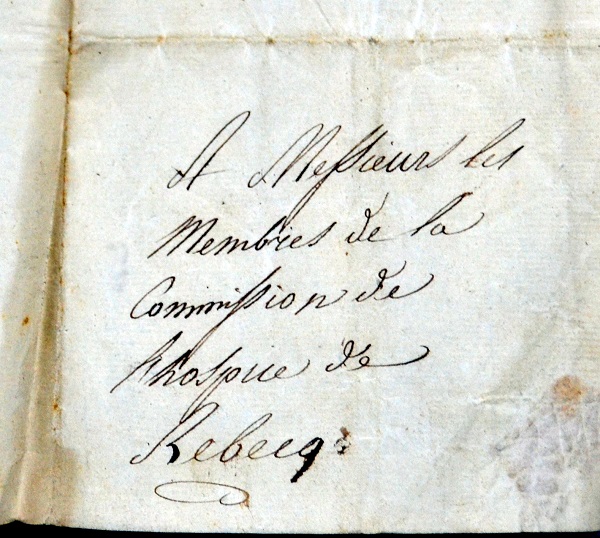 A Messieurs les
Membres de la
Commission de
l'hospice de
Rebecq